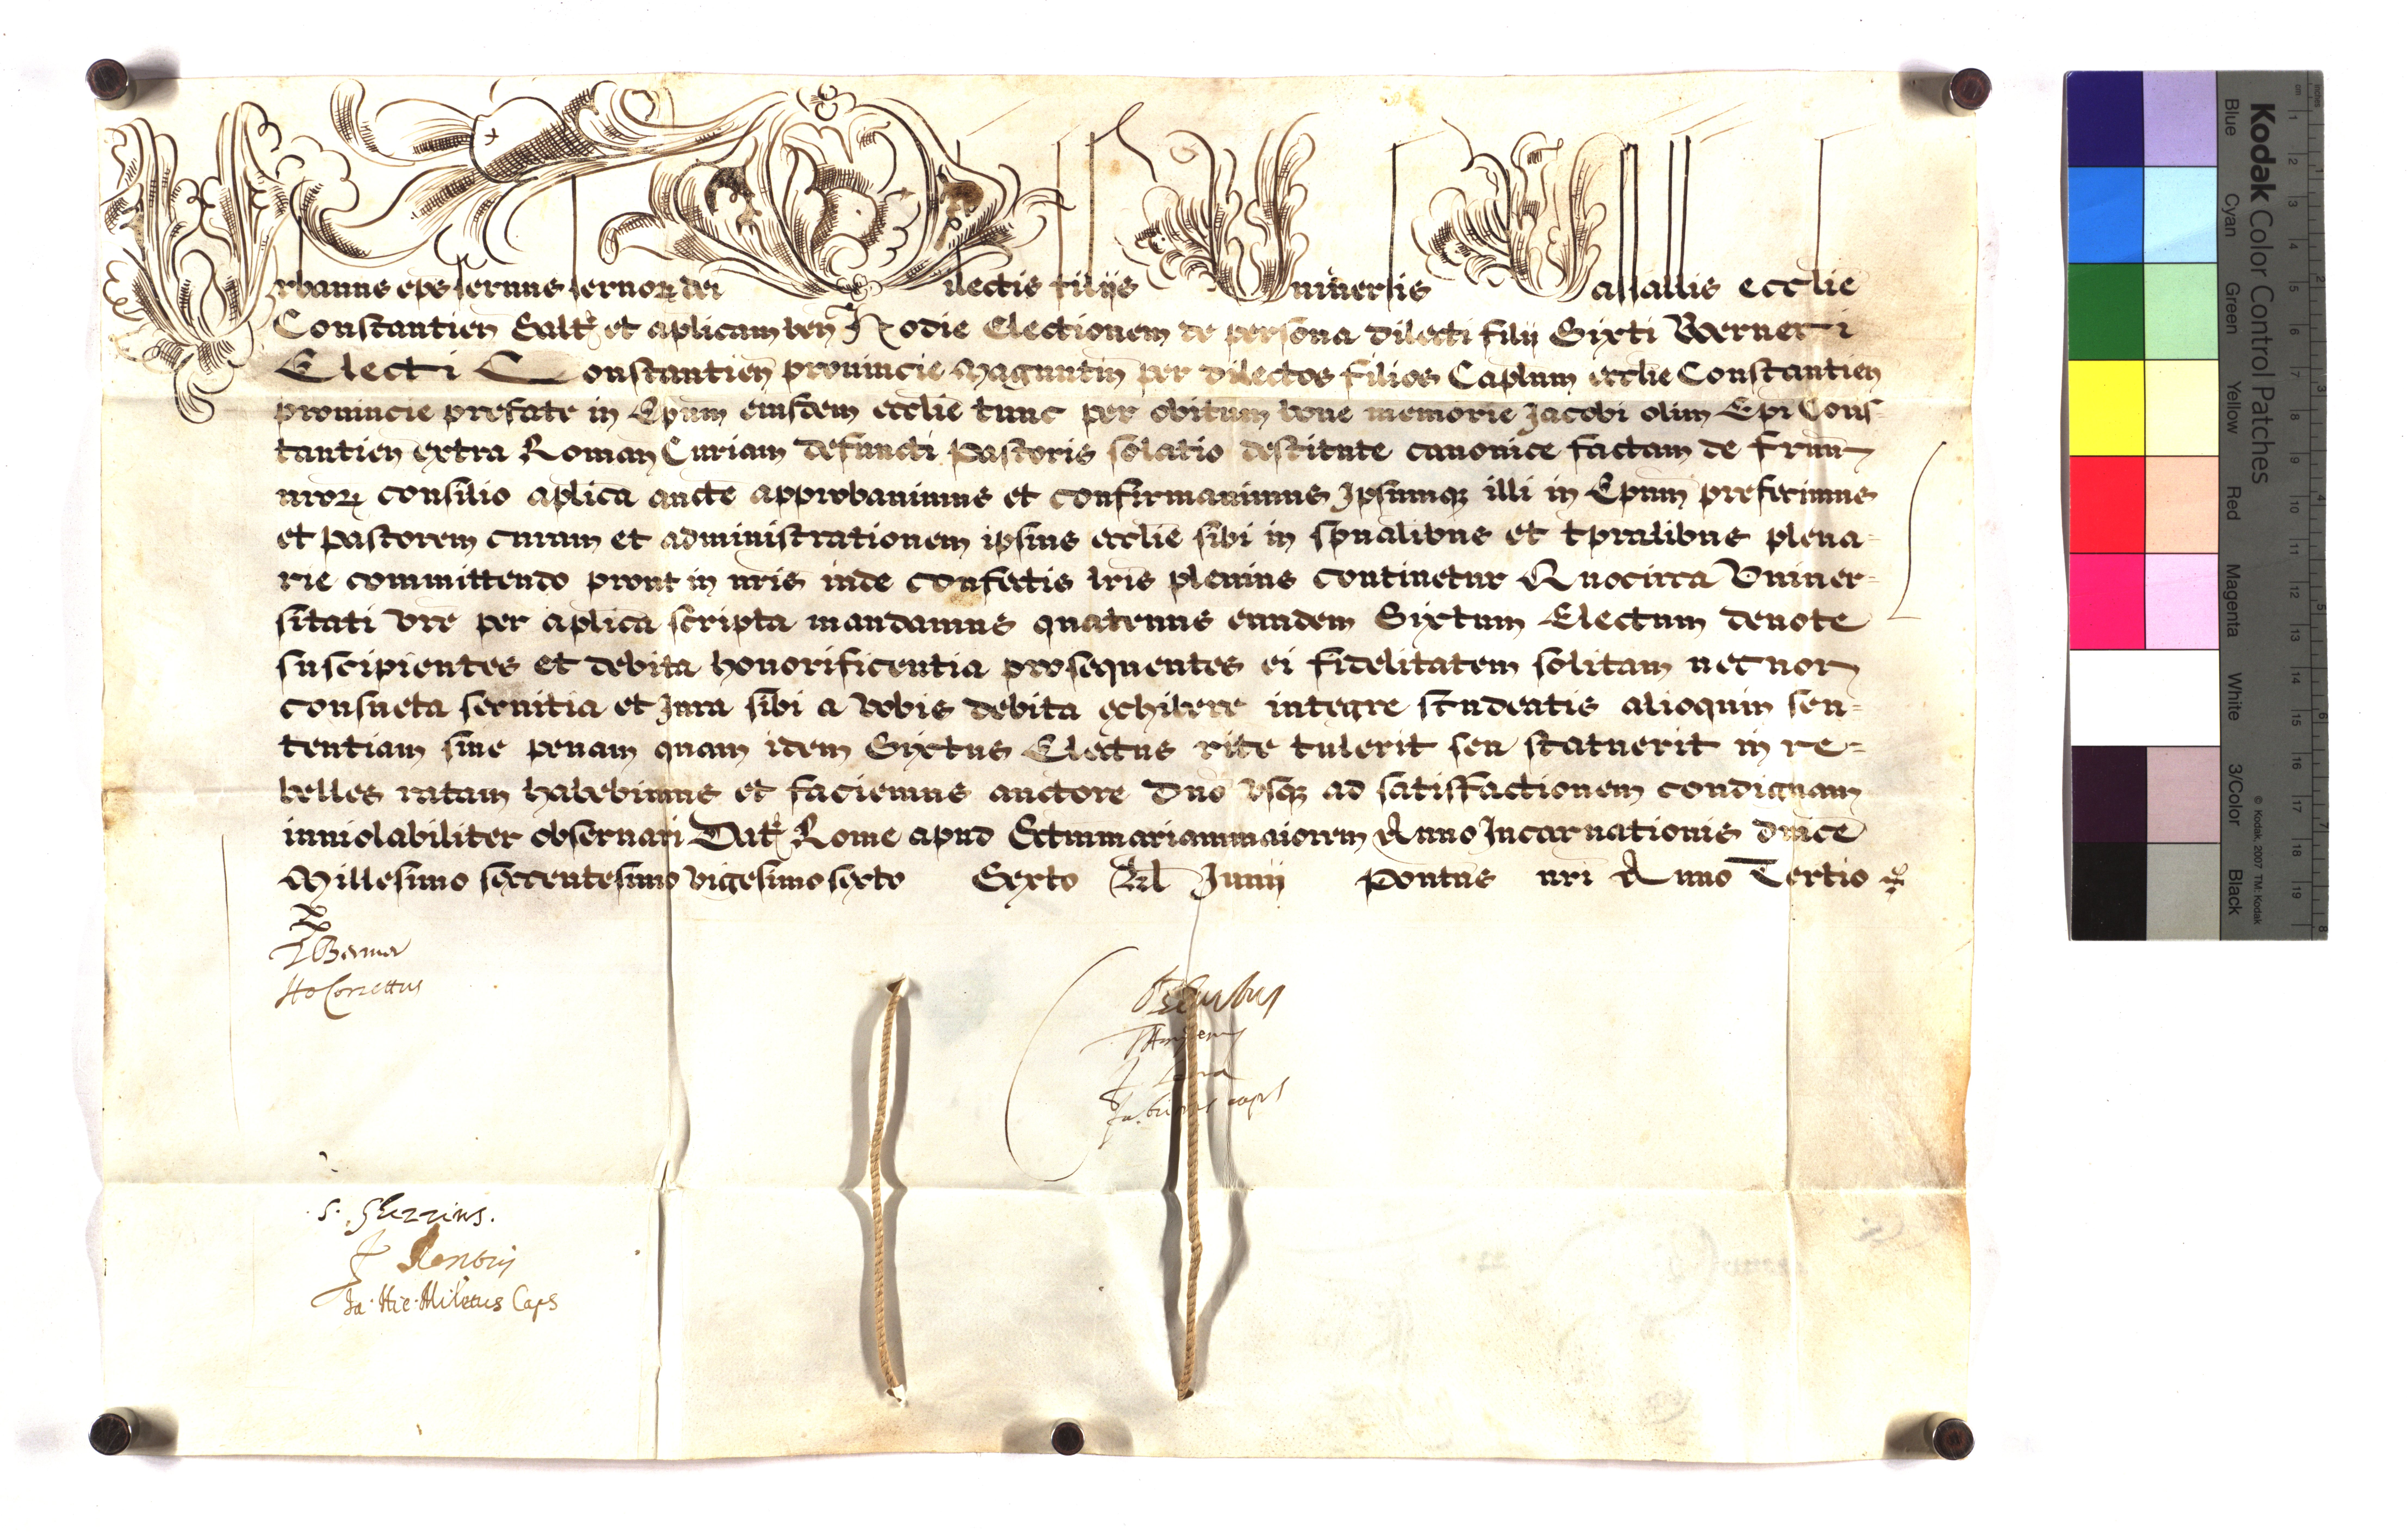 Urbanus eps seruus seruor dei Dilectis filijs Uniuersis Vasallis ecclie
Constantien Salt et aplicam ben Hodie Electionem de persona dilecti filij Sixti Werneri
Electi Constantien prouincie Maguntin per dilectos filios Caplum ecclie Constantien
prouincie prefate in Epum eiusdem ecclie tunc per obitum bone memorie Jacobi olim Epi Cons-
tantien extra Roman Curiam defuncti Pastoris solatio destitute canonice factam de frum
nror consilio aplica aucte approbauimus et confirmauimus Ipsumq illi in Epum prefecimus
et Pastorem curam et administrationem ipsius ecclie sibi in spualibus et tpralibus plena=
rie committendo prout in nris inde confectis lris plenius continetur Quocirca Vniuer=
sitati vre per aplica scripta mandamus quatenus eundem Sixtum Electum deuote
suscipientes et debita honorificentia prosequentes ei fidelitatem solitam necnon
consueta seruitia et Jura sibi a vobis debita exhibere integre studeatis alioquin sen=
tentiam siue penam quam idem Sixtus Electus rite tulerit seu statuerit in re=
belles ratam habebimus et faciemus auctore Dno vsq ad satisfactionem condignam
inuiolabiliter obseruari Dat Rome apud Sctmmariammaiorem Anno Incarnationis dnice
Millesimo sexcentesimo vigesimo sexto Sexto Kl Junij Pontus nri Anno Tertio
Ho Corzettus
Ja. Hie. Miletus Caps